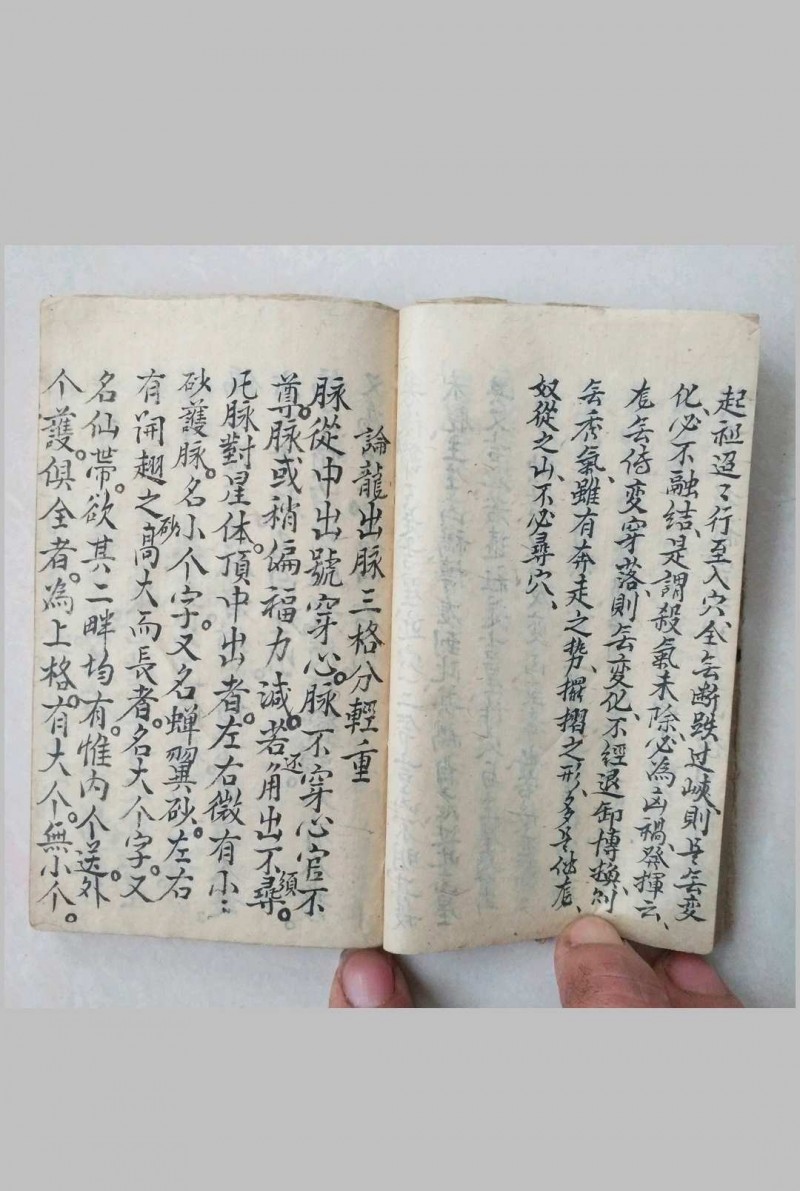 起祖迢々行至入穴、全無断跌过峽、則是無变
化、必不融結、是謂殺氣未除、必為凶禍、發揮云、
無侍变穿落、則無变化、不經退卸博換、則
無秀氣、雖有奔走之势、擺摺之形、多是
奴從之山、不必尋穴、
論龍出脉三格分輕重
脉從中出號穿心。脉不穿心官不
尊。脉或稍偏福力減。若还角出不須尋。
凡脉對星体。頂中出者。左右微有小:
砂護脉。名小个字。又名蝉翼砂。左右
有開趐之砂高大而長者。名大个字。又
名仙帶。欲其二畔均有。惟内个送。外
个護。俱全者。為上格。有大个。無小个。